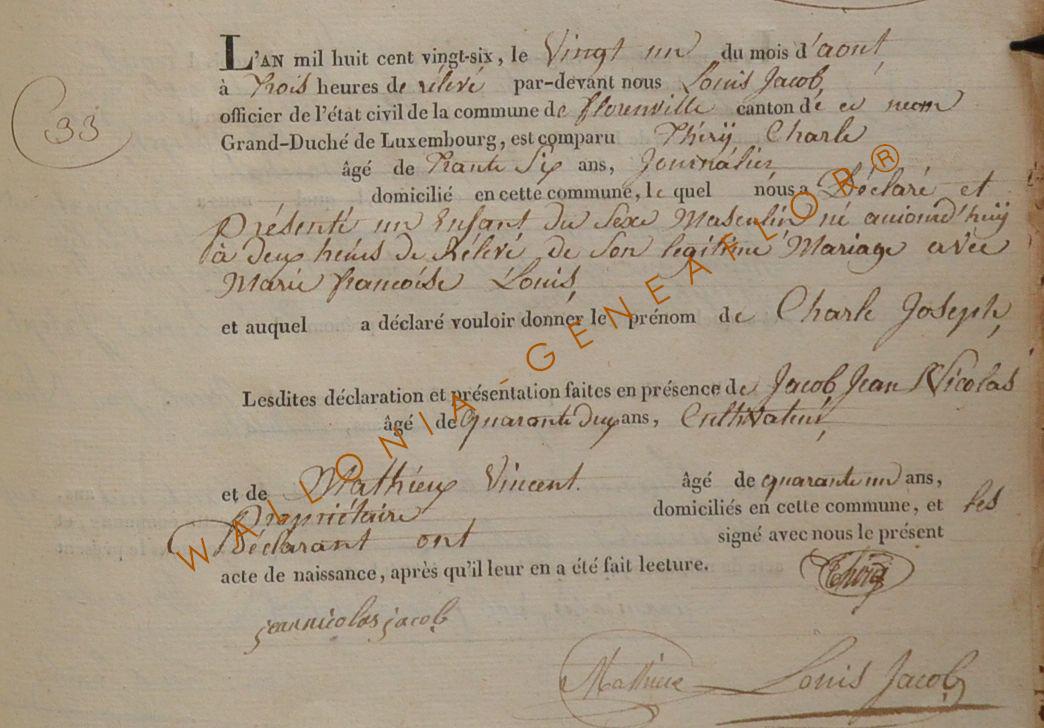 L'AN mil huit cent vingt-six, le Vingt un du mois d'aout
33
à trois heures de rélévé par-devant nous Louis Jacob
officier de l'état civil de la commune de florenville canton de ce nom
Grand-Duché de Luxembourg, est comparu Thirÿ Charle
âgé de trante Six ans, Journalier
domicilié en cette commune, le quel nous a Déclaré et
Présenté un Enfant du Sexe Masculin né aujourd'huÿ
à deux heures de Rélévé de Son legitime Mariage avec
Marie francoise Louis
et auquel a déclaré vouloir donner le prénom de Charle Joseph,
Lesdites déclaration et présentation faites en présence de Jacob Jean Nicolas
âgé de quarante deux ans, Cultivateur,
et de Mathieu Vincent. âgé de quarante un ans,
Propriétaire domiciliés en cette commune, et les
Déclarant ont signé avec nous le présent
acte de naissance, après qu'il leur en a été fait lecture.
Thirÿ
jeannicolas jacob
Mathieu Louis Jacob
WALLONIA-GENEAFLOR®